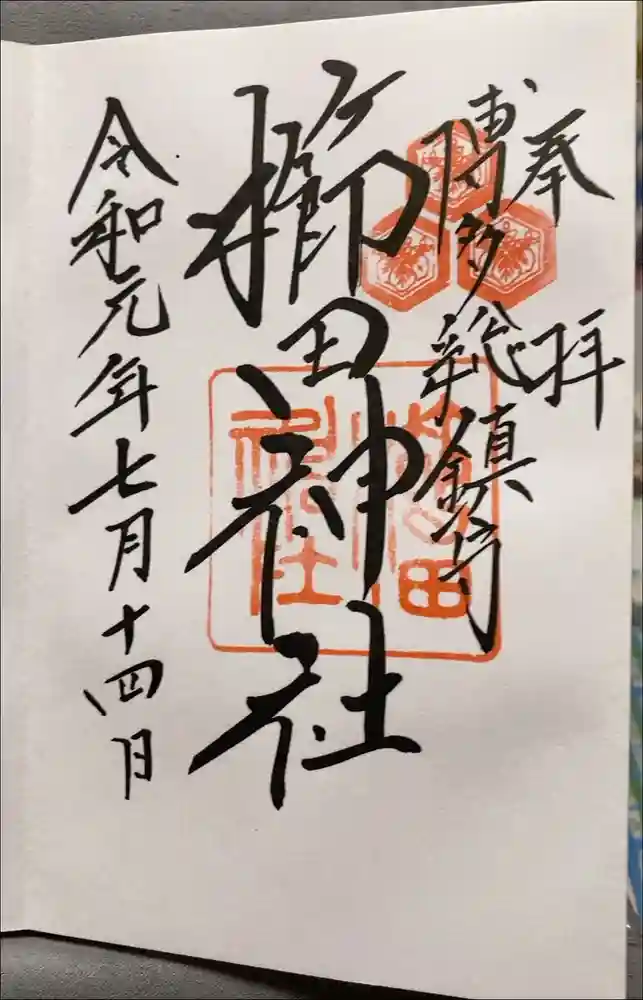 奉拝
博多総鎮守
櫛田神社
櫛田
神社
令和元年七月十四日